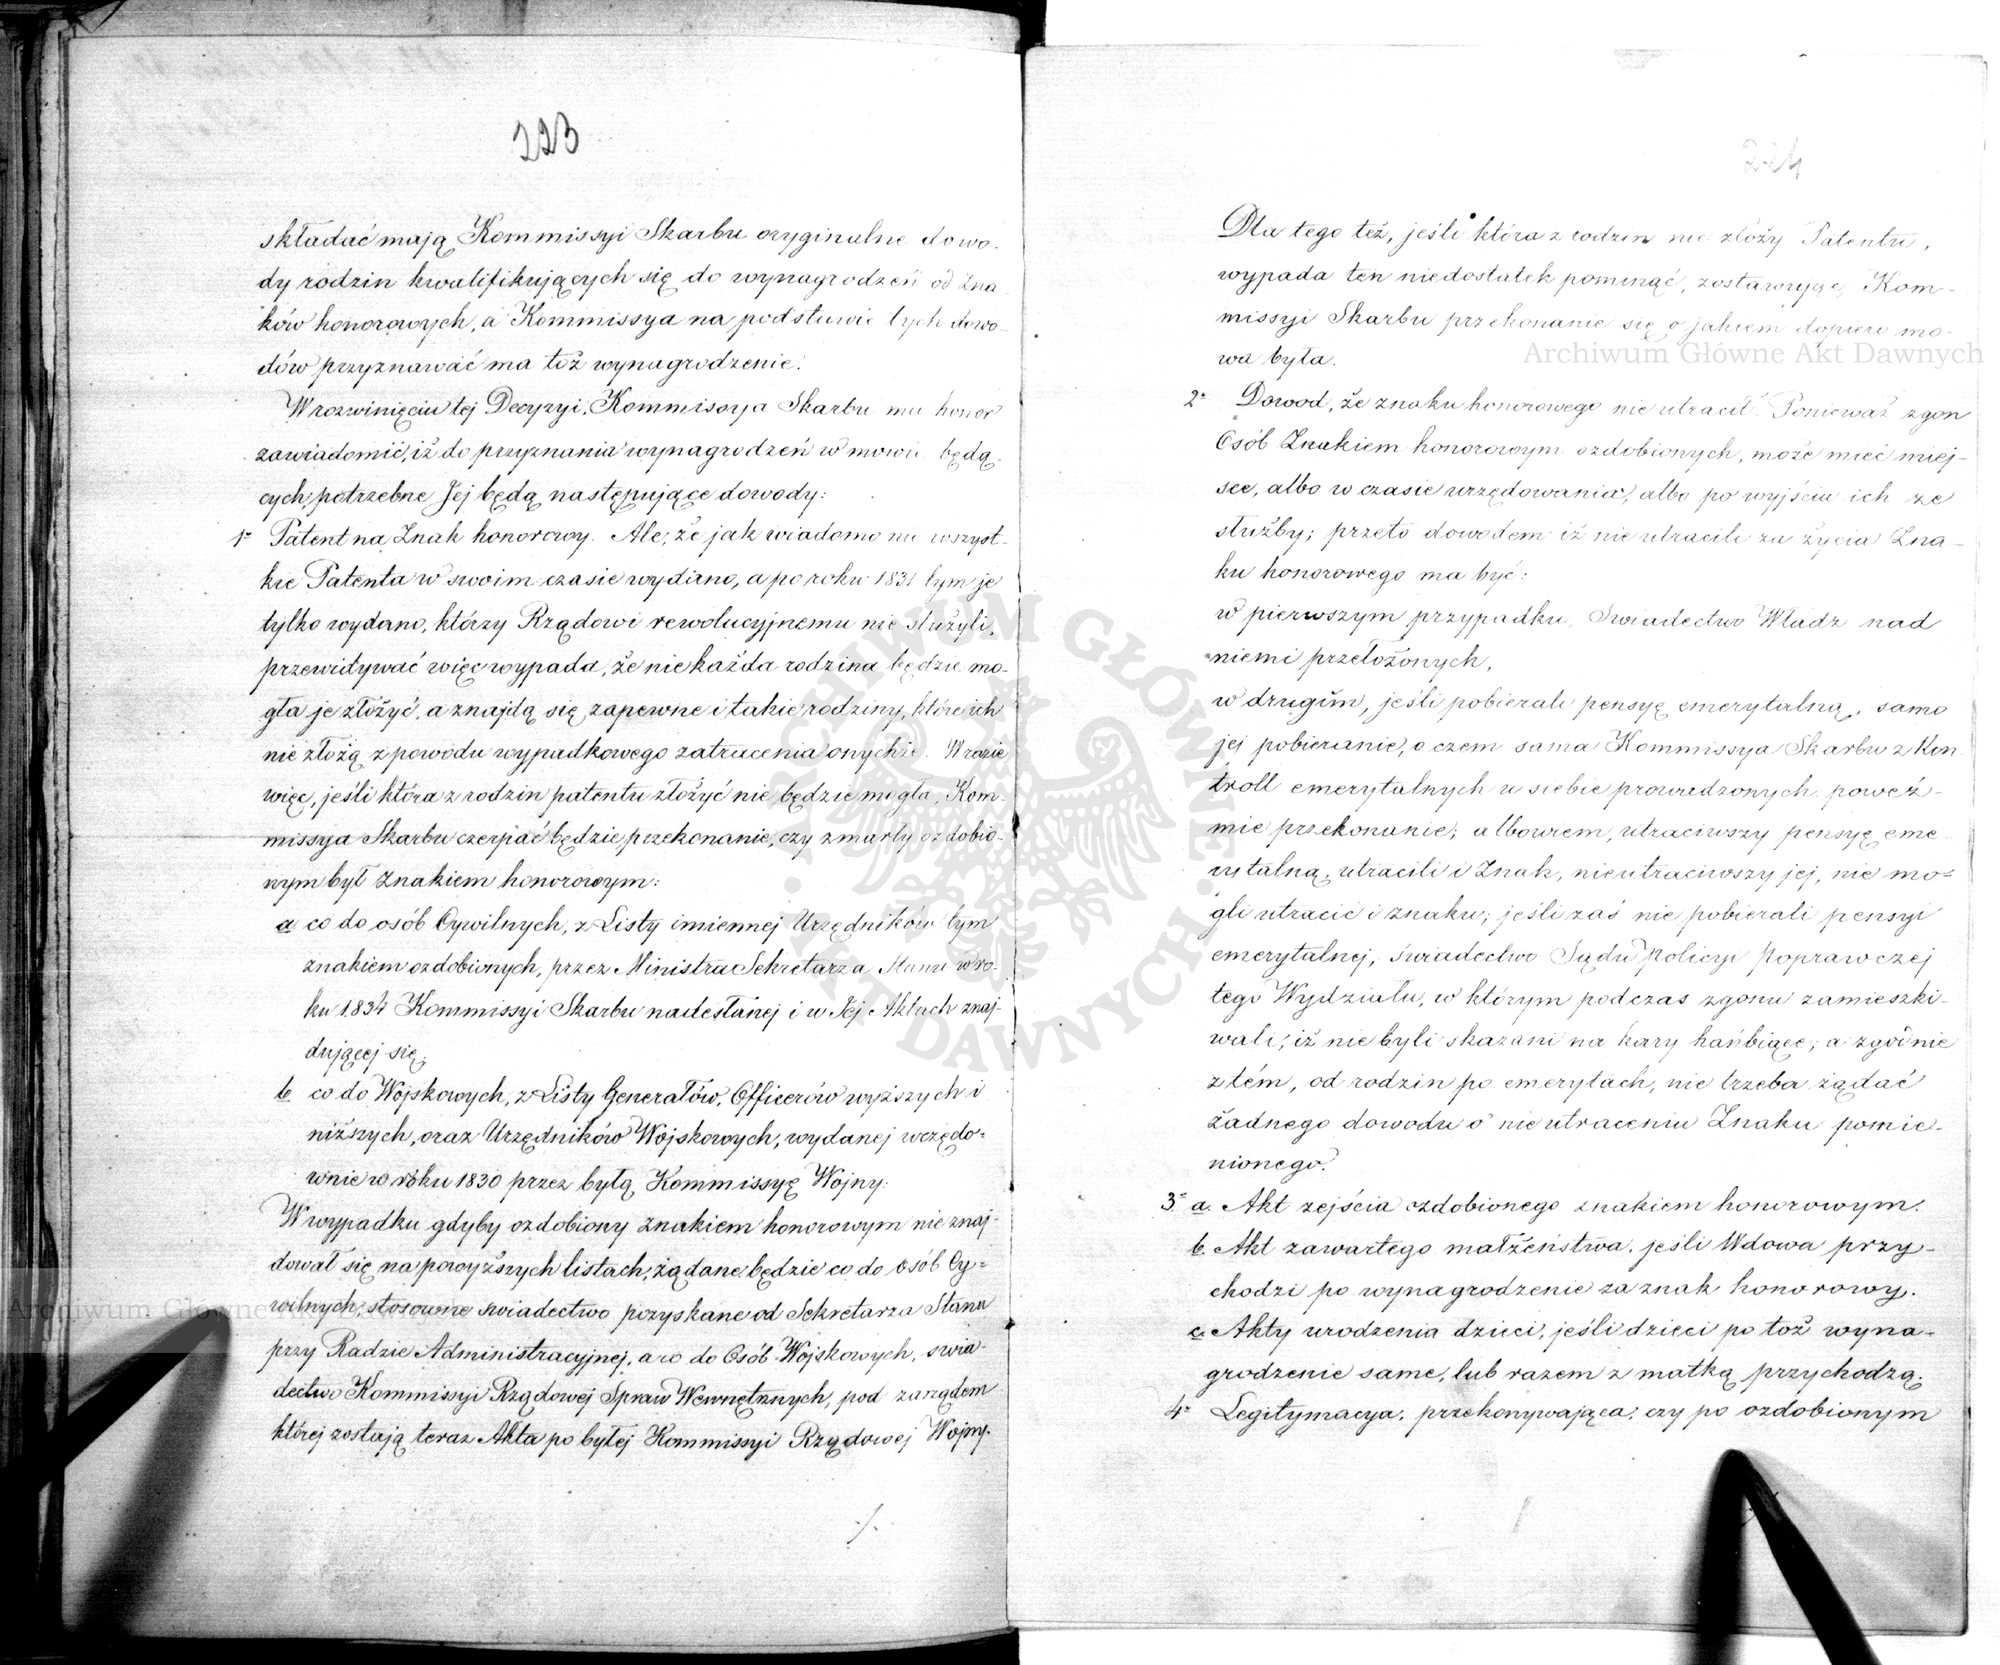 223
składać mają Kommissyi Skarbu oryginalne dowo-
dy rodzin kwalifikujących się do wynagrodzeń od Zna-
ków honorowych, a Kommissya na podstawie tych dowo-
dów przyznawać ma toż wynagrodzenie.
W rozwinięciu tej Decyzyi, Kommissya Skarbu ma honor
zawiadomić, iż do przyznania wynagrodzeń w mowie będą-
cych, potrzebne Jej będą następujące dowody:
1º Patent na Znak honorowy. Ale, że jak wiadomo nie wszyst-
kie Patenta w swoim czasie wydano, a po roku 1831 tym je
tylko wydano, którzy Rządowi rewolucyjnemu nie służyli,
przewidywać więc wypada, że nie każda rodzina będzie mo-
gła je złożyć, a znajdą się zapewne i takie rodziny, które ich
nie złożą z powodu wypadkowego zatracenia onychże. W razie
więc, jeśli która z rodzin patentu złożyć nie będzie mogła, Kom-
missya Skarbu czerpać będzie przekonanie, czy zmarły ozdobio-
nym był Znakiem honorowym:
a co do osób Cywilnych, z Listy imiennej Urzędników tym
znakiem ozdobionych, przez Ministra Sekretarza Stanu w ro-
ku 1834 Kommissyi Skarbu nadesłanej i w Jej Aktach znaj-
dującej się.
b co do Wojskowych, z Listy Generałów, Officerów wyższych i
niższych, oraz Urzędników Wojskowych, wydanej urzędo-
wnie w roku 1830 przez byłą Kommissyę Wojny.
W wypadku gdyby ozdobiony znakiem honorowym nie znaj-
dował się na powyższych listach, żądane będzie co do osób Cy-
wilnych, stosowne swiadectwo pozyskane od Sekretarza Stanu
przy Radzie Administracyjnej, a co do Osób Wojskowych, swia-
dectwo Kommissyi Rządowej Spraw Wewnętrznych, pod zarządem
której zostają teraz Akta po byłej Kommissyi Rządowej Wojny.
./.
224
Dla tego też, jeśli która z rodzin nie złoży Patentu,
wypada ten niedostatek pominąć, zostawując Kom-
missyi Skarbu przekonanie się o jakiem dopiero mo-
wa była.
2º Dowod, że znaku honorowego nie utracił. Ponieważ zgon
Osób Znakiem honorowym ozdobionych, może mieć miej-
sce, albo w czasie urzędowania, albo po wyjściu ich ze
służby; przeto dowodem iż nie utracili za życia Zna-
ku honorowego ma być:
w pierwszym przypadku, Swiadectwo Władz nad
niemi przełożonych,
w drugim, jeśli pobierali pensyę emerytalną, samo
jej pobieranie, o czem sama Kommissya Skarbu z Kon-
troll emerytalnych u siebie prowadzonych poweź-
mie przekonanie; albowiem, utraciwszy pensyę eme-
rytalną, utracili i Znak, nieutraciwszy jej, nie mo-
gli utracić i znaku; jeśli zaś nie pobierali pensyi
emerytalnej, swiadectwo Sądu Policyi Poprawczej
tego Wydziału, w którym podczas zgonu zamieszki-
wali, iż nie byli skazani na kary hańbiące; a zgodnie
z tém, od rodzin po emerytach, nie trzeba żądać
żadnego dowodu o nie utraceniu Znaku pomie-
nionego.
3º a. Akt zejścia ozdobionego znakiem honorowym.
b. Akt zawartego małżeństwa, jeśli Wdowa przy-
chodzi po wynagrodzenie za znak honorowy.
c. Akty urodzenia dzieci, jeśli dzieci, po toż wyna-
grodzenie same, lub razem z matką przychodzą.
4º Legitymacya, przekonywająca, czy po ozdobionym
Archiwum Główne Akt Dawnych
Archiwum Główne Akt Dawnych
ARCHIWUM GŁÓWNE AKT DAWNYCH